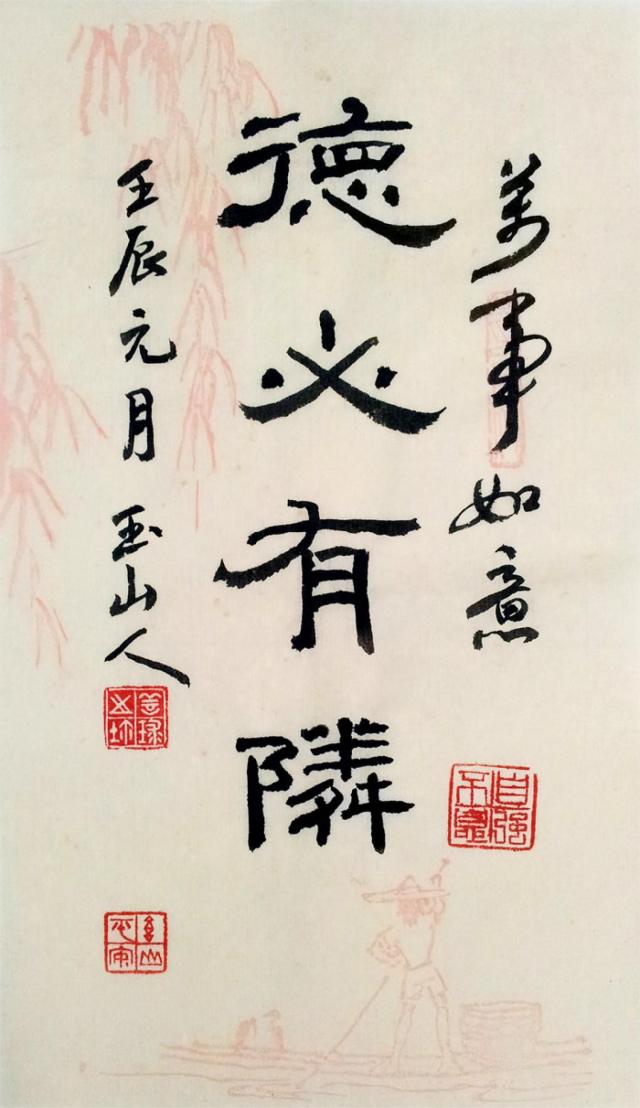 萬事如意
德必有隣
壬辰元月 玉山人
自強不息